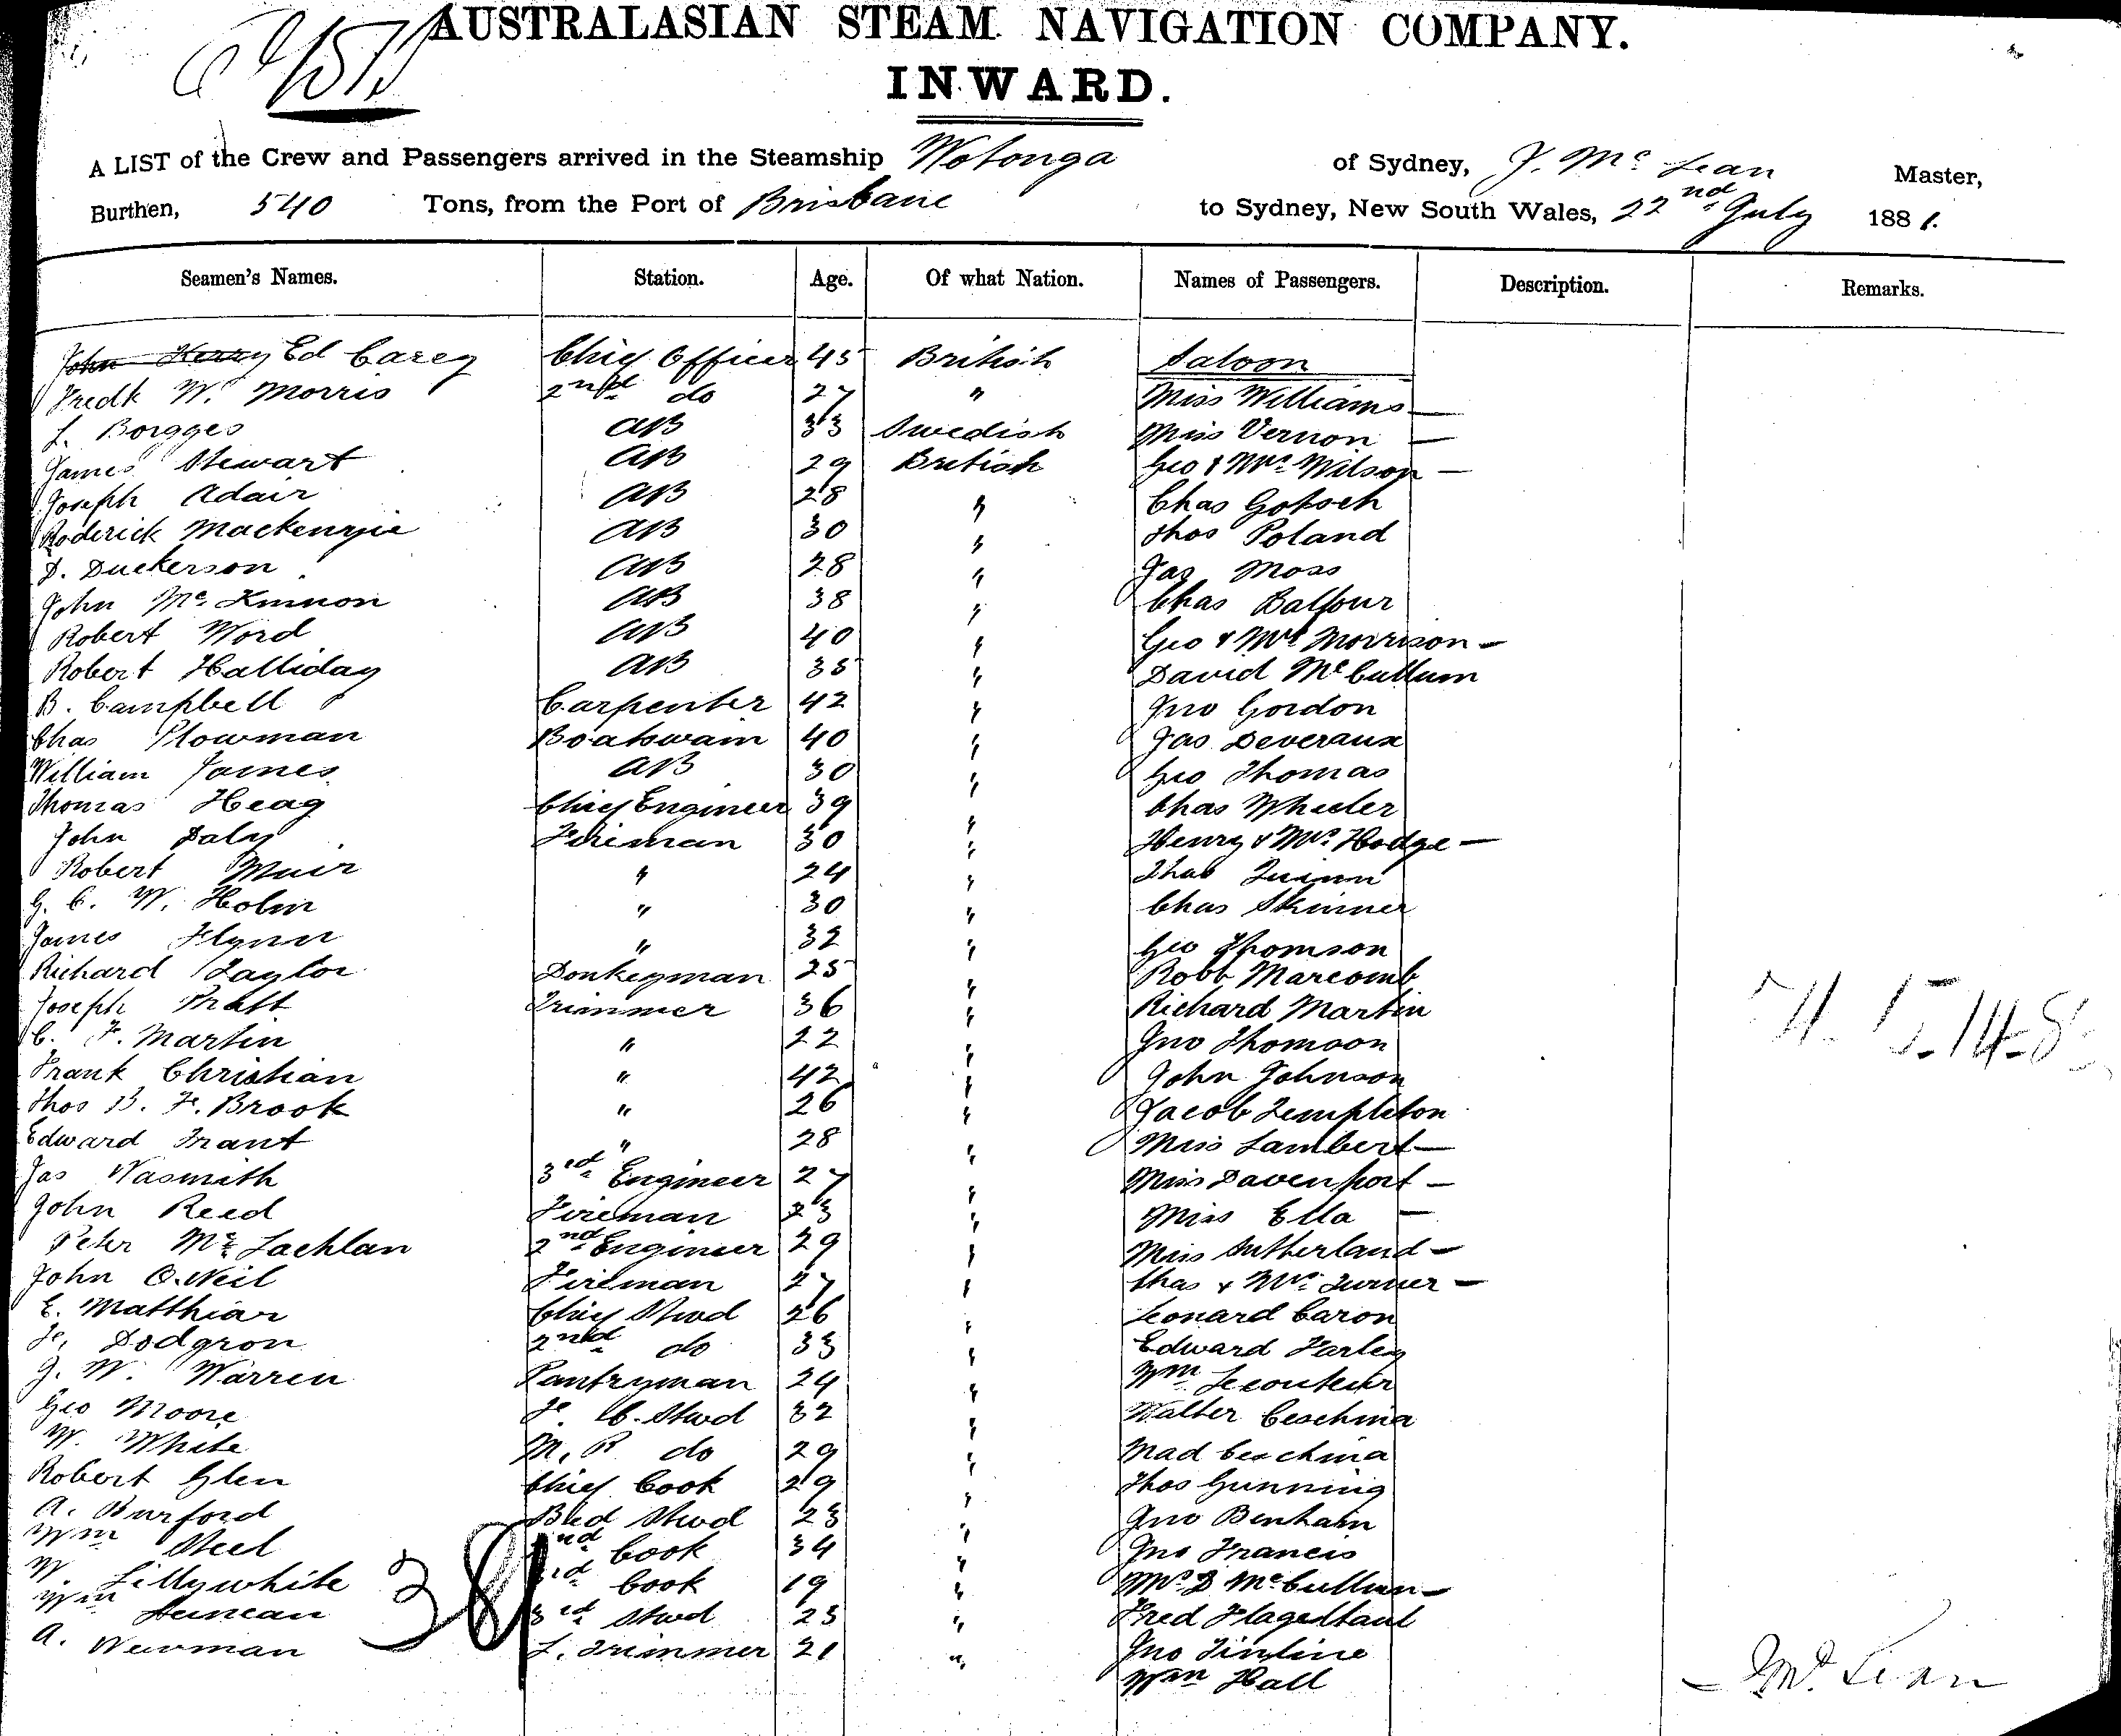 AUSTRALASIAN STEAM NAVIGATION COMPANY.
INWARD.
A LIST of the Crew and Passengers arrived in the Steamship Wotonga of Sydney, J. Mc Lean Master,
Burthen, 540 Tons, from the Port of Brisbane to Sydney, New South Wales, 22nd July 1881.
Seamen's Names. Station. Age. Of what Nation. Names of Passengers. Description. Remarks.
John Kerry Ed Carey Chief Officer 45 British Saloon
Fredk W. Morris 2nd do 27 " Miss Williams —
L. Borgges AB 33 Swedish Miss Vernon —
James Stewart AB 29 British Geo & Mrs Wilson —
Joseph Adair AB 28 " Chas Gotsch
Roderick Mackenzie AB 30 " Thos Poland
D. Duckerson AB 28 " Jas Moss
John Mc Kinnon AB 38 " Chas Balfour
Robert Word AB 40 " Geo & Mrs Morrison —
Robert Halliday AB 35 " David McCullum
B. Campbell Carpenter 42 " Jno Gordon
Chas Plowman Boatswain 40 " Jas Deveraux
William James AB 30 " Geo Thomas
Thomas Heag Chief Engineer 39 " Chas Wheeler
John Daly Fireman 30 " Henry & Mrs Hodge —
Robert Muir " 24 " Thos Quinn
G. C. W. Holm " 30 " Chas Skinner
James Flynn " 32 " Geo Thomson
Richard Taylor Donkeyman 25 " Robt Marcomb
Joseph Pratt Trimmer 36 " Richard Martin
C. F. Martin " 22 " Jno Thomson
Frank Christian " 42 " John Johnson
Thos B. F. Brook " 26 " Jacob Templeton
Edward Trant " 28 " Miss Lambert —
Jas Wasmith 3rd Engineer 27 " Miss Davenport —
John Reed Fireman 23 " Miss Ella —
Peter Mc Lachlan 2nd Engineer 29 " Miss Sutherland —
John O.Neil Fireman 27 " Chas & Mrs Turner —
E. Matthiar Chief Stwd 26 " Leonard Caron
F. Dodgron 2nd do 33 " Edward Farley
J. W. Warren Pantryman 24 " Wm Lecouteur
Geo Moore F. C. Stwd 32 " Walter Ceschina
W. White M. R do 29 " Mad Ceschina
Robert Glen Chief Cook 29 " Thos Gunning
A. Burford Bed Stwd 23 " Jno Benham
Wm Steel 2nd Cook 34 " Jno Francis
W Lillywhite 3rd Cook 19 " Mrs D McCullum —
Wm Duncan 3rd Stwd 23 " Fred Flagestaul
A. Newman L. Trimmer 21 " Jno Tintine
Wm Hall
38
J Mc Lean